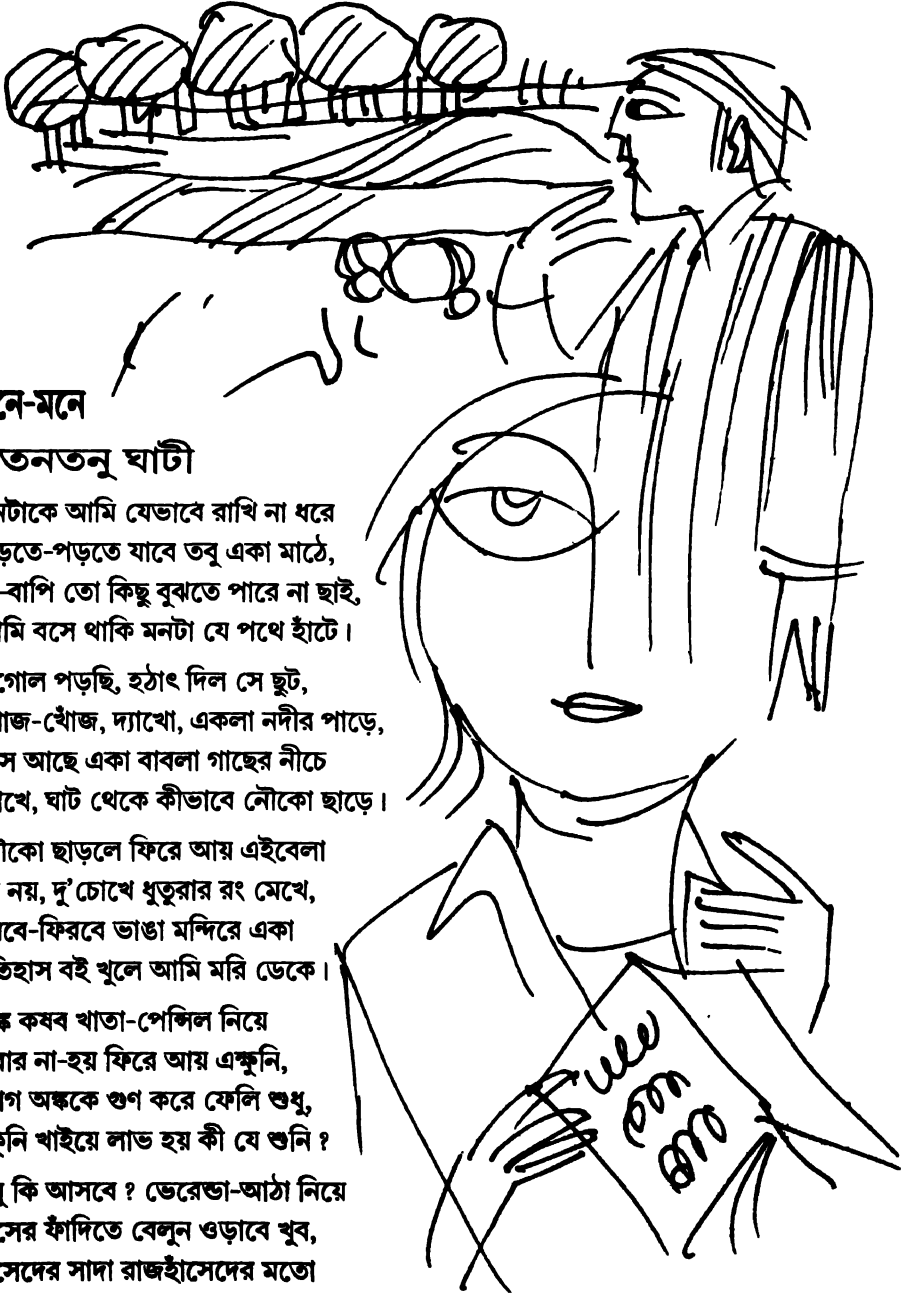 নে-মনে
তনতনু ঘাটী
নটাকে আমি যেভাবে রাখি না ধরে
ড়তে-পড়তে যাবে তবু একা মাঠে,
-বাপি তো কিছু বুঝতে পারে না ছাই,
মি বসে থাকি মনটা যে পথে হাঁটে।
গোল পড়ছি, হঠাৎ দিল সে ছুট,
োঁজ-খোঁজ, দ্যাখো, একলা নদীর পাড়ে,
সে আছে একা বাবলা গাছের নীচে
খে, ঘাট থেকে কীভাবে নৌকো ছাড়ে।
ৌকো ছাড়লে ফিরে আয় এইবেলা
নয়, দু'চোখে ধুতুরার রং মেখে,
রবে-ফিরবে ভাঙা মন্দিরে একা
তিহাস বই খুলে আমি মরি ডেকে।
ঙ্ক কষব খাতা-পেন্সিল নিয়ে
বার না-হয় ফিরে আয় এক্ষুনি,
গ অঙ্ককে গুণ করে ফেলি শুধু,
কুনি খাইয়ে লাভ হয় কী যে শুনি ?
বু কি আসবে ? ভেরেন্ডা-আঠা নিয়ে
সের ফাঁদিতে বেলুন ওড়াবে খুব,
সেদের সাদা রাজহাঁসেদের মতো